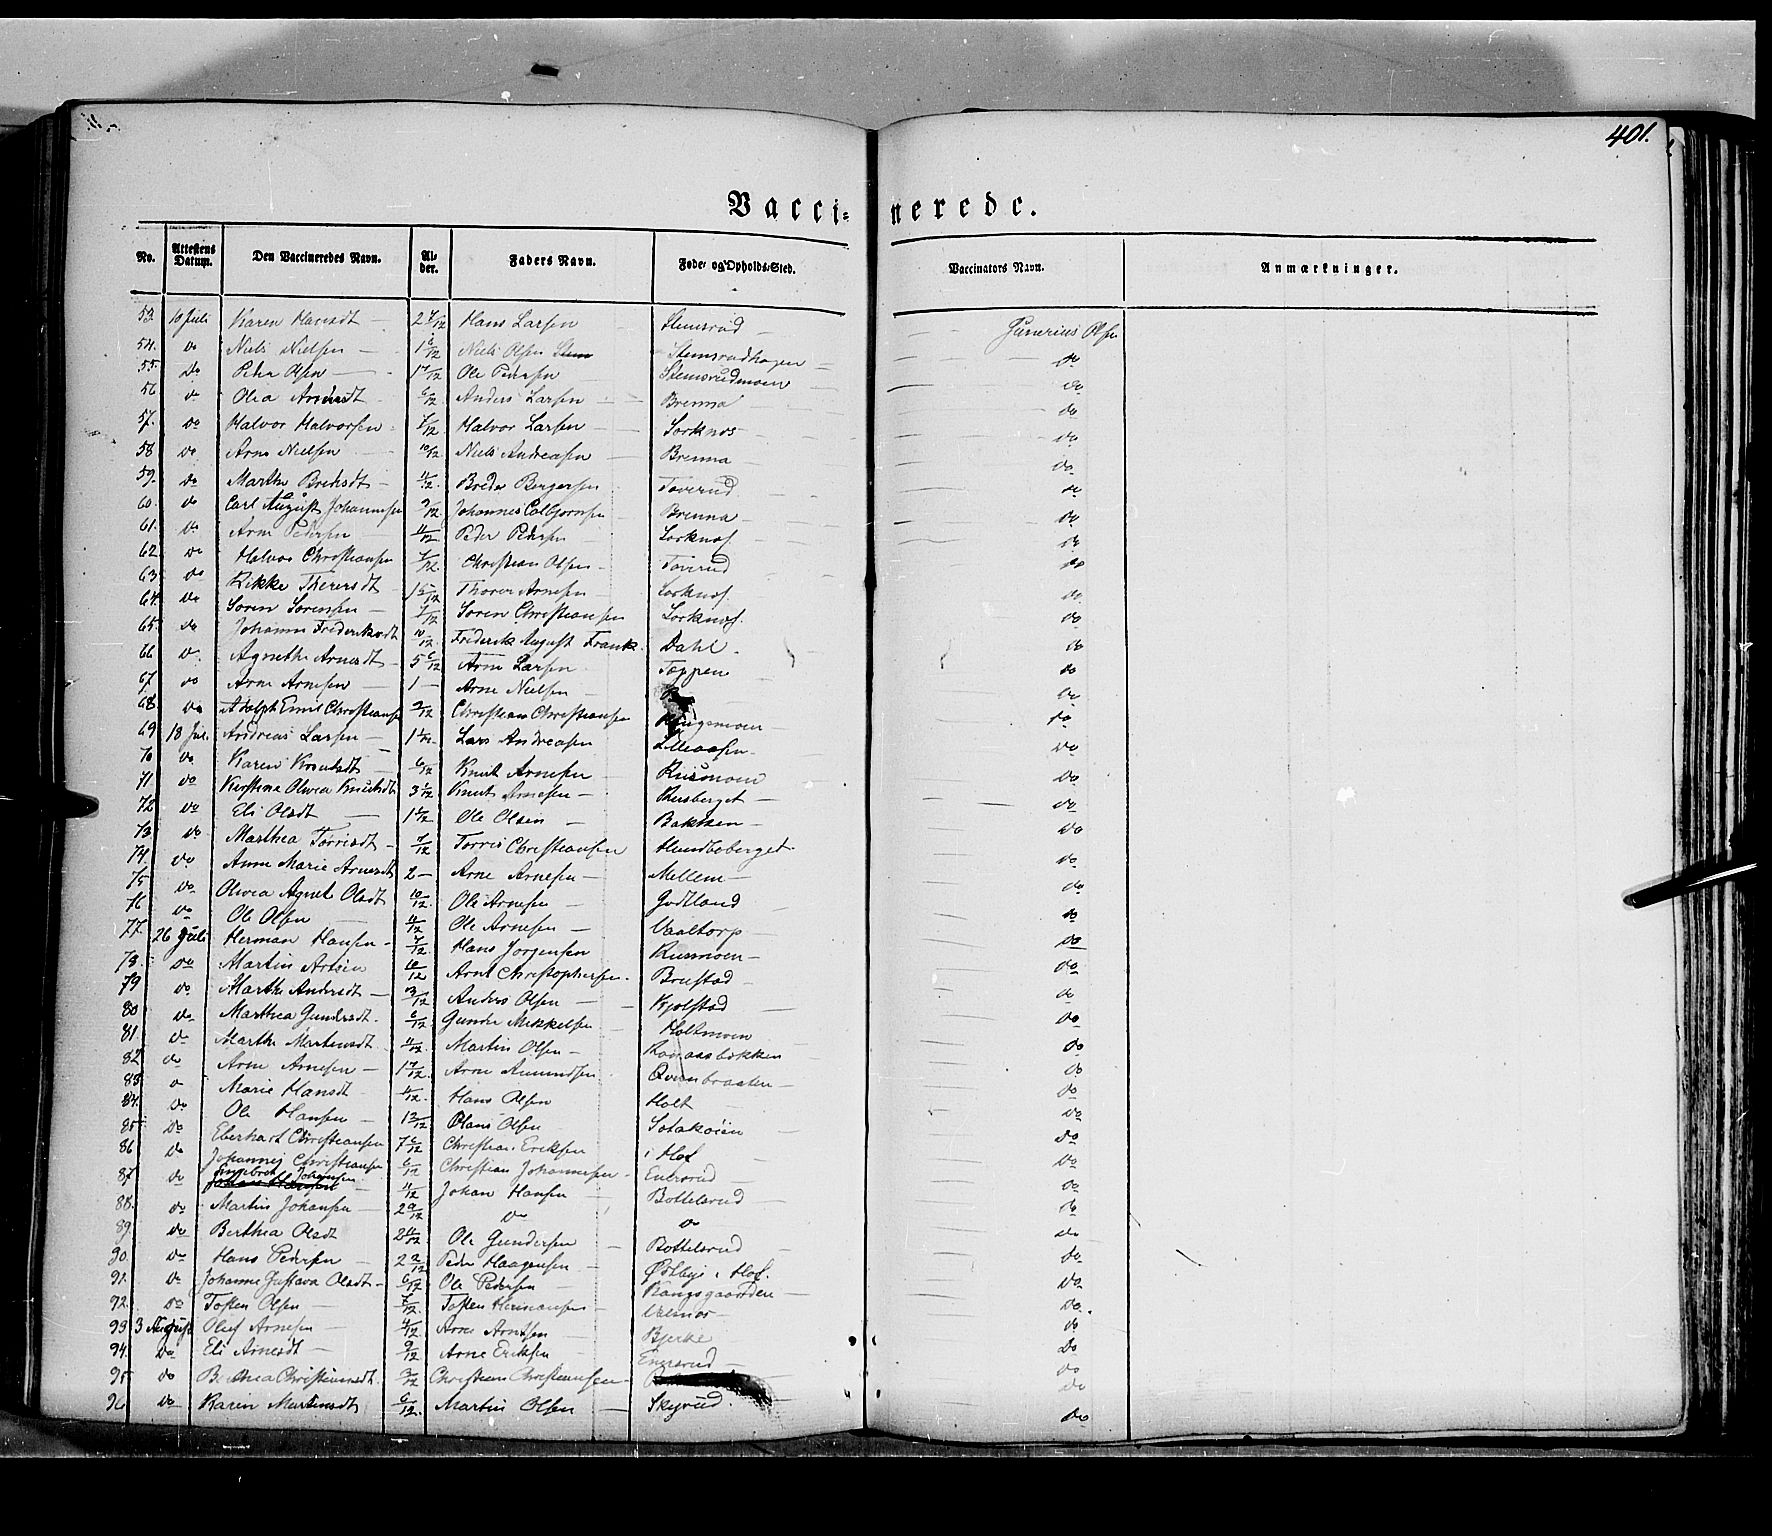 401.
Vaccinerede.
No. Attestens Datum. Den Vaccineredes Navn. Alder. Faders Navn. Føde- og Opholds-Sted. Vaccinators Navn. Anmærkninger.
53. 10 Juli Karen Hansdt 2 Hans Larsen Stemsrud Gunerius Olsen
54. do Niels Nielsen Niels Olsen Stemsrudhagen do
55. do Peder Olsen Ole Pedersen Stemsrudmoen do
56 do Olea Andersdt 6/12 Anders Larsen Brenna do
57. do Halvor Halvorsen Halvor Larsen Sorknos do
58 do Arne Nielsen 10/12 Niels Andreasen Brenna do
59. do Marthe Bredesdt 11/12 Breder Bergersen Toverud do
60. do Carl August Johannesen 9/12 Johannes Brenna do
61. do Arne Pedersen 11/12 Peder Pedersen Sorknos do
62 do Halvor Christiansen Christian Olsen Toverud do
63 do Rikke Thorersdt Thorer Arnesen Sorknos do
64. do Soren Sorensen Soren Christiansen Sorknos do
65. do Johanne Frederiksdt 10/12 Frederik August Frank Dahl do
66 do Agnethe Arnesdt 5 6/12 Arne Larsen Toppen do
67. do Arne Arnesen 1 Arne Nielsen do
68. do Adolph Emil Christiansen 9/12 Christian Christiansen do
69 18 Jul. Andreas Larsen Lars Andreasen do
70 do Karen Knutsdt 6/12 Knut Arnesen Rusmoen do
71 do Kirstina Olivea Knutsdt Knut Arnesen Rusberget do
72 do Eli Olsdt Ole Olsen Bakken do
73 do Marthea Torrisdt Torris Christiansen Hundbeberget do
74. do Anne Marie Arnesdt 2 Arne Arnesen Mellem do
75 do Olivea Agnete Olsdt 10/12 Ole Arnesen Godtland do
76 do Ole Olsen 11/12 Ole Arnesen Vaaltorp do
77. 26 Juli Herman Hansen 7/12 Hans Jorgensen Rusmoen do
78. do Martin Arntsen 10/12 Arnt Christophersen Brustad do
79 do Marthe Andersdt Anders Olsen Kjolstad do
80 do Marthea Gundersdt 6/12 Gunder Mikkelsen Holtmoen do
81 do Marthe Martinsdt 11/12 Martin Olsen do
82 do Arne Arnesen Arne Amundsen Qvernbraaten do
83 do Marie Hansdt Hans Olsen Holt do
84. do Ole Hansen Hans Olsen do
85 do Eberhart Christiansen 7 6/12 Christian Eriksen i Hof do
86 do Johannes Christiansen 6/12 Christian Johannesen Enersrud do
87 do Engebret Johansen 11/12 Johan Hansen Bottelsrud do
88. do Martin Johansen 2 9/12 do do do
89 do Berthea Olsdt Ole Gundersen Bottelsrud do
90 do Hans Pedersen 2 9/12 Peder Haagensen Østbye i Hof. do
91. do Johanne Gustava Olsdt 6/12 Ole Pedersen Kongsgaarden do
92. do Tosten Olsen 7/12 Tosten Hermansen do
93 3 August Oluf Arnesen Arne Arntsen Bjerke do
94. do Eli Arnesdt 9/12 Arne Eriksen Enersrud do
95 do Berthea Christiansdt Christian Christiansen do
96 do Karen Martinsdt 6/12 Martin Olsen Skyrud do